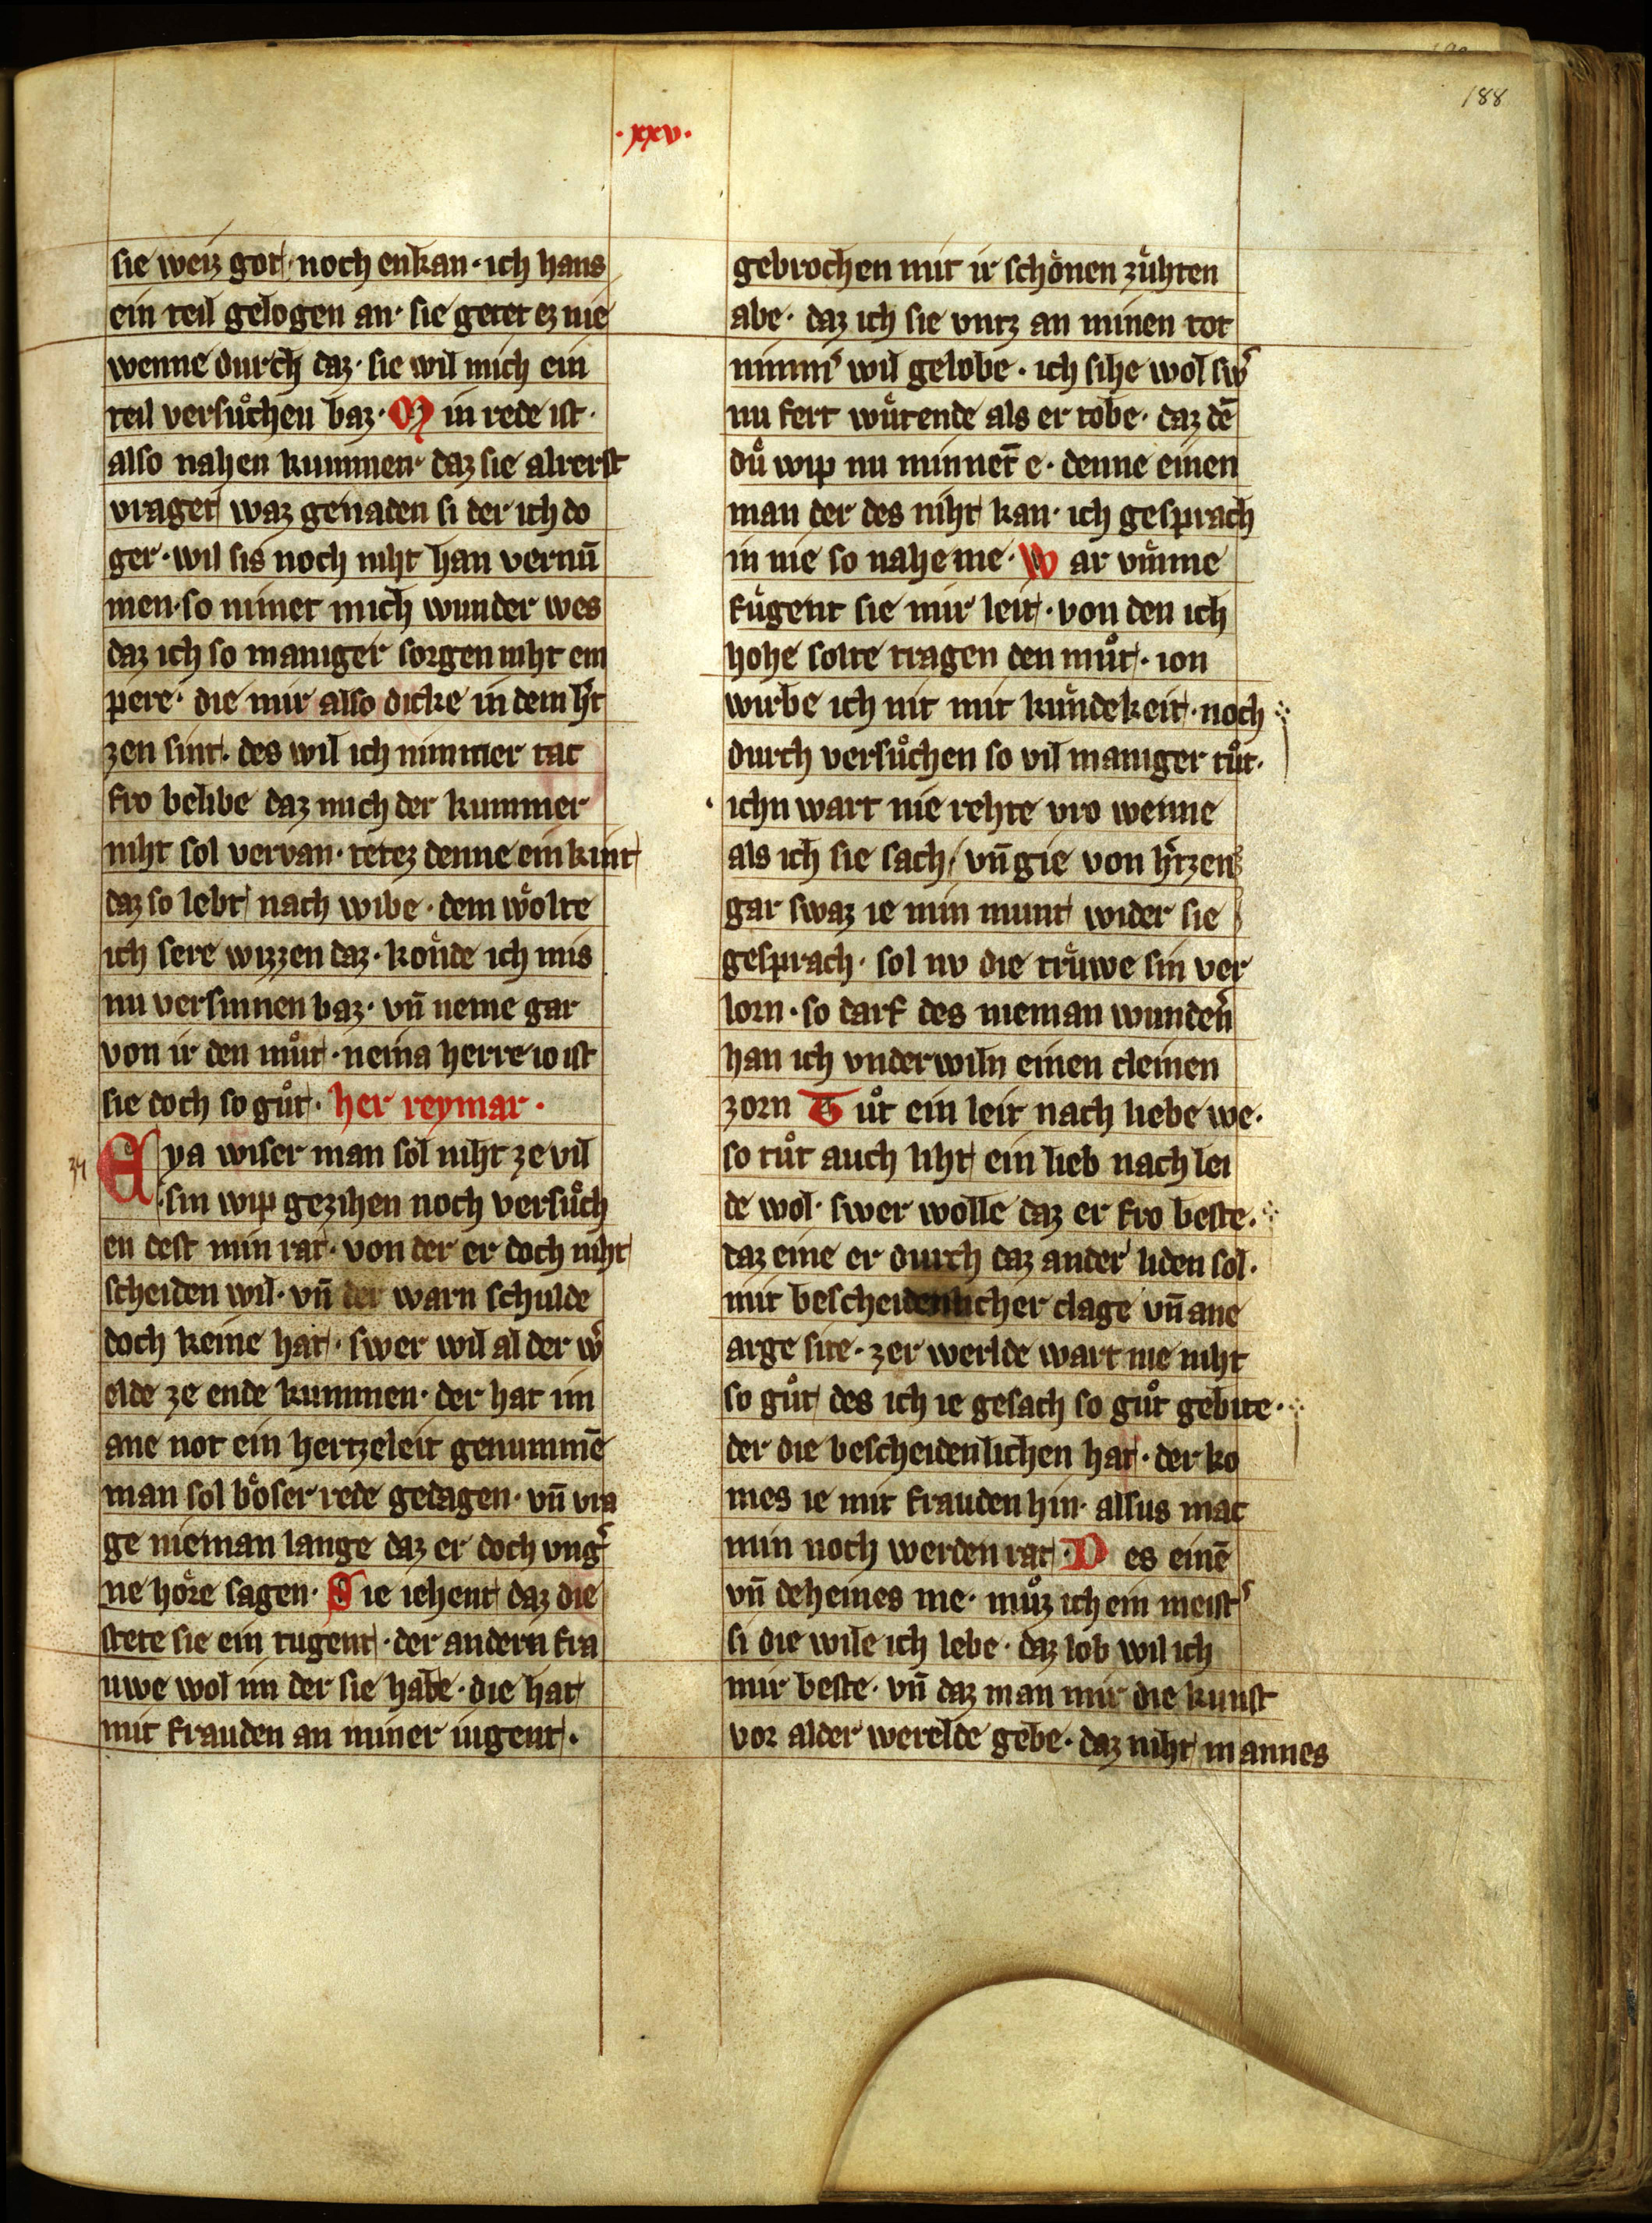 188
·xxv·
sie weiz got· noch enkan· ich hans
ein teil gelogen an· sie getet ez nie
wenne durch daz· sie wil mich ein
teil versuͦchen baz· Min rede ist·
also nahen kummen· daz sie alrerst
vraget waz genaden si der ich do
ger· wil sis noch niht han vernū
men· so nimet mich wunder wes
daz ich so maniger sorgen niht em
pere· die mir also dicke in dem h͛t
zen sint· des wil ich nimmer tac
fro belibe daz mich der kummer
niht sol vervan· tetez denne ein kint
daz so lebt nach wibe· dem woͤlte
ich sere wizzen daz· koͤnde ich mis
nu versinnen baz· vn̄ neme gar
von ir den muͦt· neina herre io ist
sie doch so guͦt· her reymar·
34
Eya wiser man sol niht ze vil
sin wip gezihen noch versuͦch
en dest min rat· von der er doch niht
scheiden wil· vn̄ der warn schulde
doch keine hat· swer wil al der w͛
elde ze ende kummen· der hat im
ane not ein hertzeleit genummē
man sol boͤser rede gedagen· vn̄ vra
ge nieman lange daz er doch vng͛
ne hoͤre sagen· Sie iehent daz die
stete sie ein tugent· der andern fra
uwe wol im der sie habe· die hat
mit frauden an miner iugent·
gebrochen mit ir schoͤnen zuͤhten
abe· daz ich sie vntz an minen tot
nimm͛ wil gelobe· ich sihe wol sw͛
nu fert wuͤtende als er tobe· daz dē
duͤ wip nu minnet̄ e· denne einen
man der des niht kan· ich gesprach
in nie so nahe me· War vmme
fuͤgent sie mir leit· von den ich
hohe solte tragen den muͦt· ion
wirbe ich nit mit kuͤndekeit· noch
durch versuͦchen so vil maniger tuͦt·
ichn wart nie rehte vro wenne
als ich sie sach/ vn̄ gie von h͛tzen
gar swaz ie min munt wider sie
gesprach· sol nv die truͤwe sin ver
lorn· so darf des nieman wunden͛
han ich vnderwiln einen cleinen
zorn Tuͦt ein leit nach liebe we·
so tuͦt auch liht ein lieb nach lei
de wol· swer wolle daz er fro beste·
daz eine er durch daz ander liden sol·
mit bescheidenlicher clage vn̄ ane
arge site· zer werlde wart nie niht
so guͦt des ich ie gesach so guͦt gebite·
der die bescheidenlichen hat· der ko
mes ie mit frauden hin· alsus mac
min noch werden rat· Des einē
vn̄ deheines me· muͦz ich ein meist͛
si die wile ich lebe· daz lob wil ich
mir beste· vn̄ daz man mir die kunst
vor alder werelde gebe· daz niht mannes